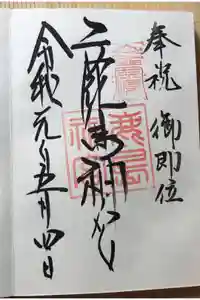 奉祝 御即位
鹿島神社
令和元年五月四日